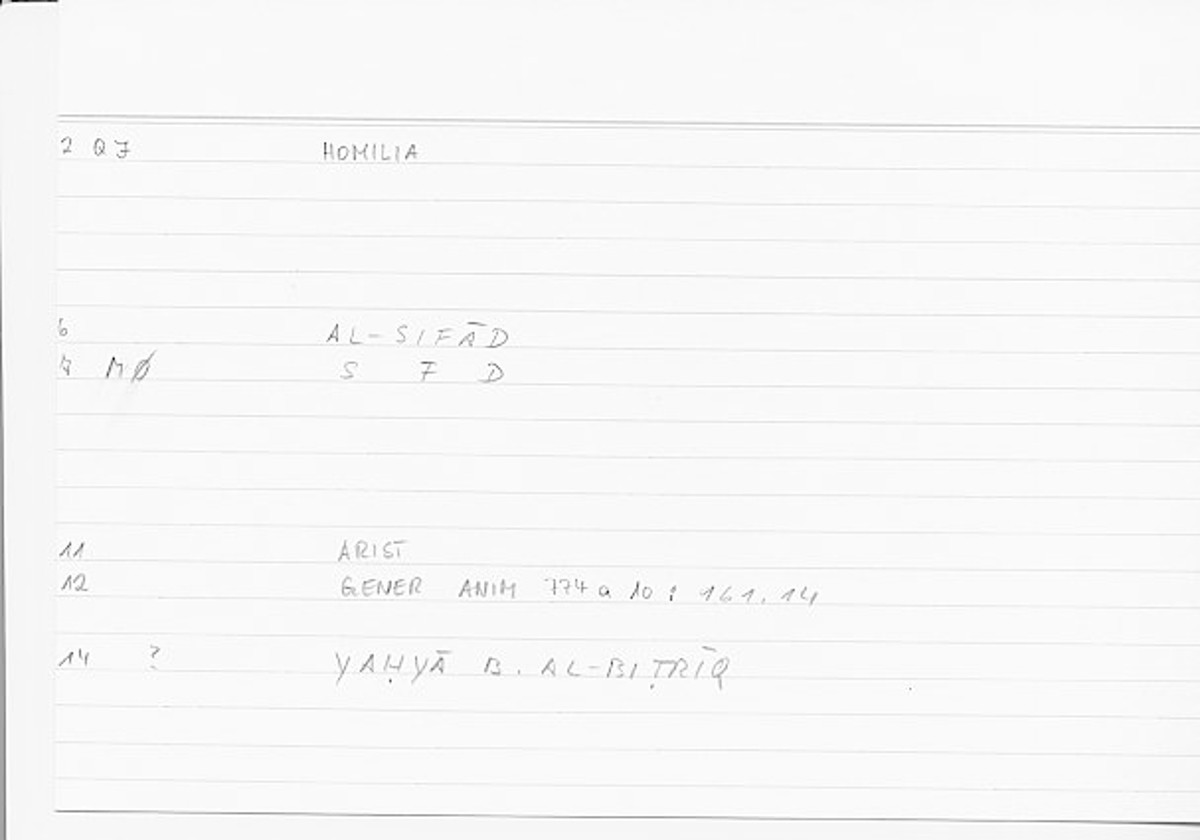 2 QF HOMILIA
6 AL-SIFĀD
7 MØ S F D
11 ARIST
12 GENER ANIM 774 a 10 : 161.14
14 ? YAḤYĀ B. AL-BIṬRĪQ